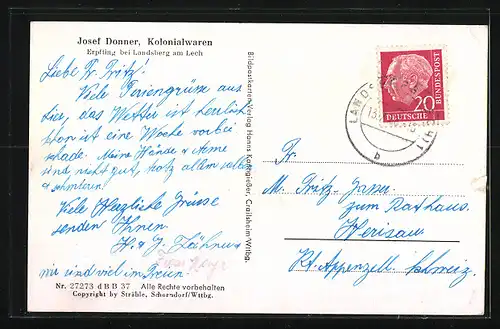 Josef Donner, Kolonialwaren
Erpfting bei Landsberg am Lech
Liebe Fr. Fritz!
Viele Feriengrüsse aus
hier, das Wetter ist herrlich
schon ist eine Woche vorbei
schade. Meine Hände & Arme
sind nicht gut, trotz allem salben
&
Viele Herzliche Grüsse
senden Ihnen
H. & J.
wir sind viel im Freien
Nr. 27273 d B B 37 Alle Rechte vorbehalten
Copyright by Strähle, Schorndorf/Wttbg.
Bildpostkarten-Verlag Hanns Kohngießer, Crailsheim-Wttbg.
DEUTSCHE
BUNDESPOST
20
LANDS
(LECH)
b
Fr.
M. Fritz-
zum Rathaus.
Herisau
Kt. Appenzell. Schweiz.